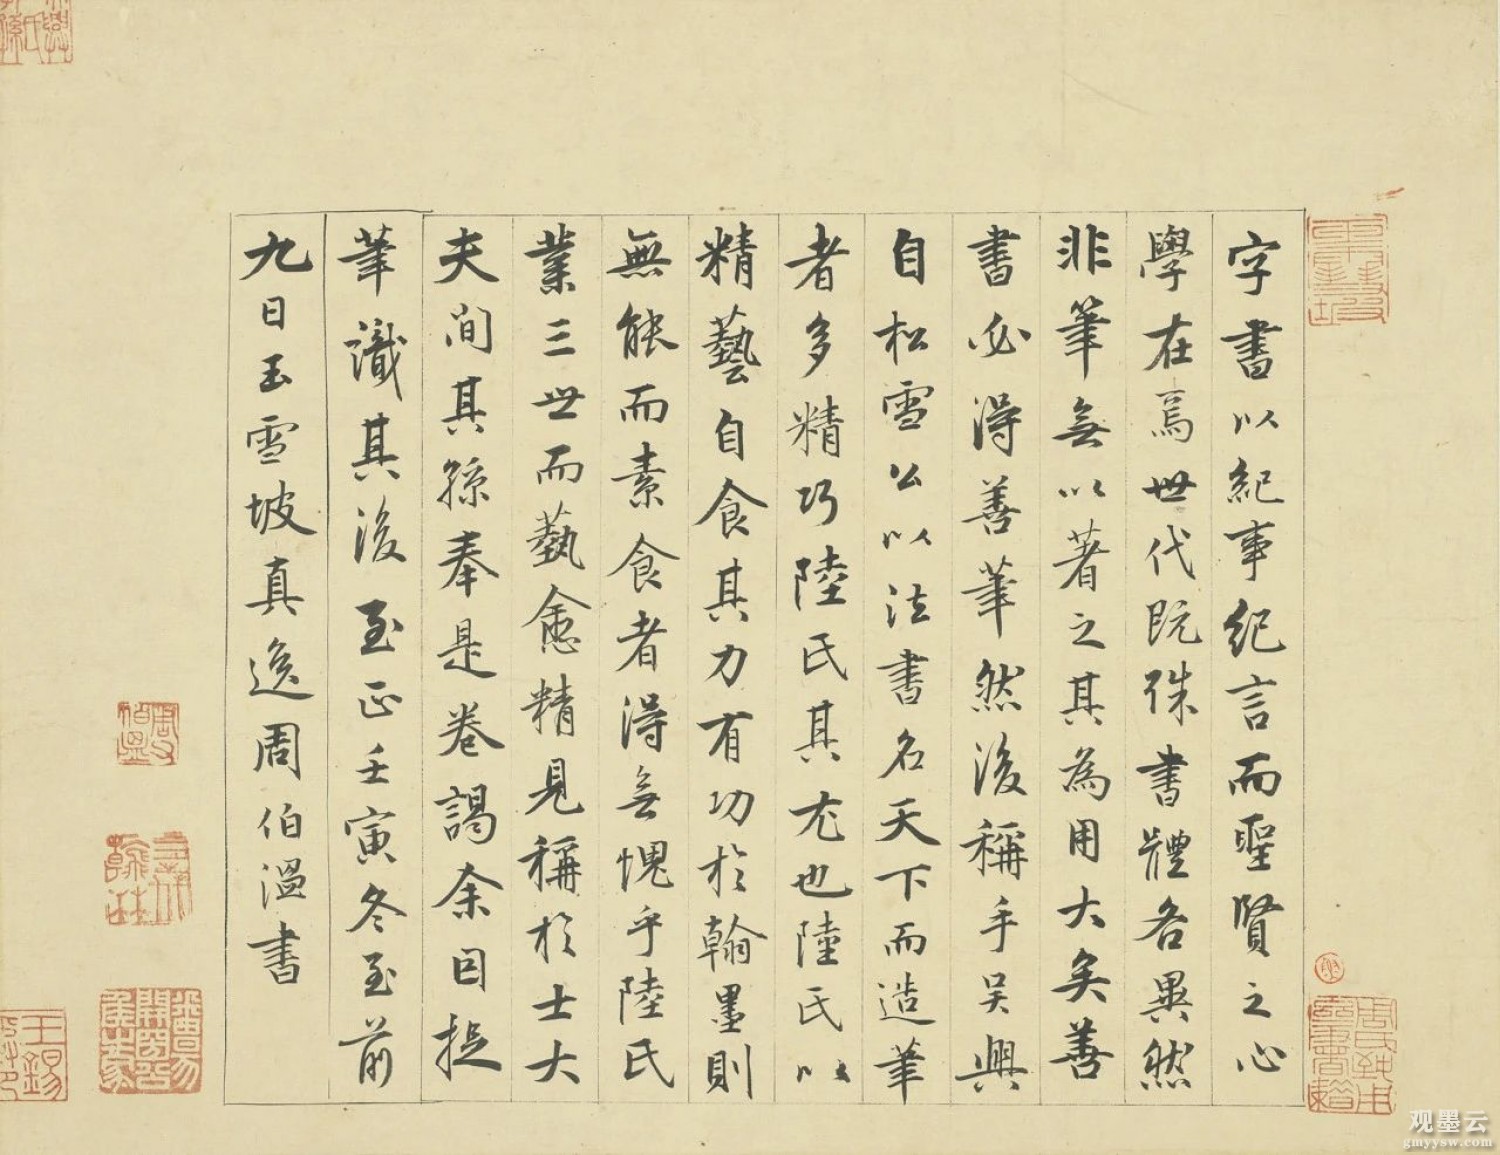 字書以紀事紀言而聖賢之心
學在焉世代既殊書體各異然
非筆無以著之其為用大矣善
書必得善筆然後稱手吴興
自松雪公以法書名天下而造筆
者多精巧陸氏其尤也陸氏以
精藝自食其力有功於翰墨則
無能而素食者得無愧乎陸氏
業三世而藝愈精見稱於士大
夫間其孫奉是卷謁余因捉
筆識其後至正壬寅冬至前
九日玉雪坡真逸周伯溫書
观墨云
gmyysw.com